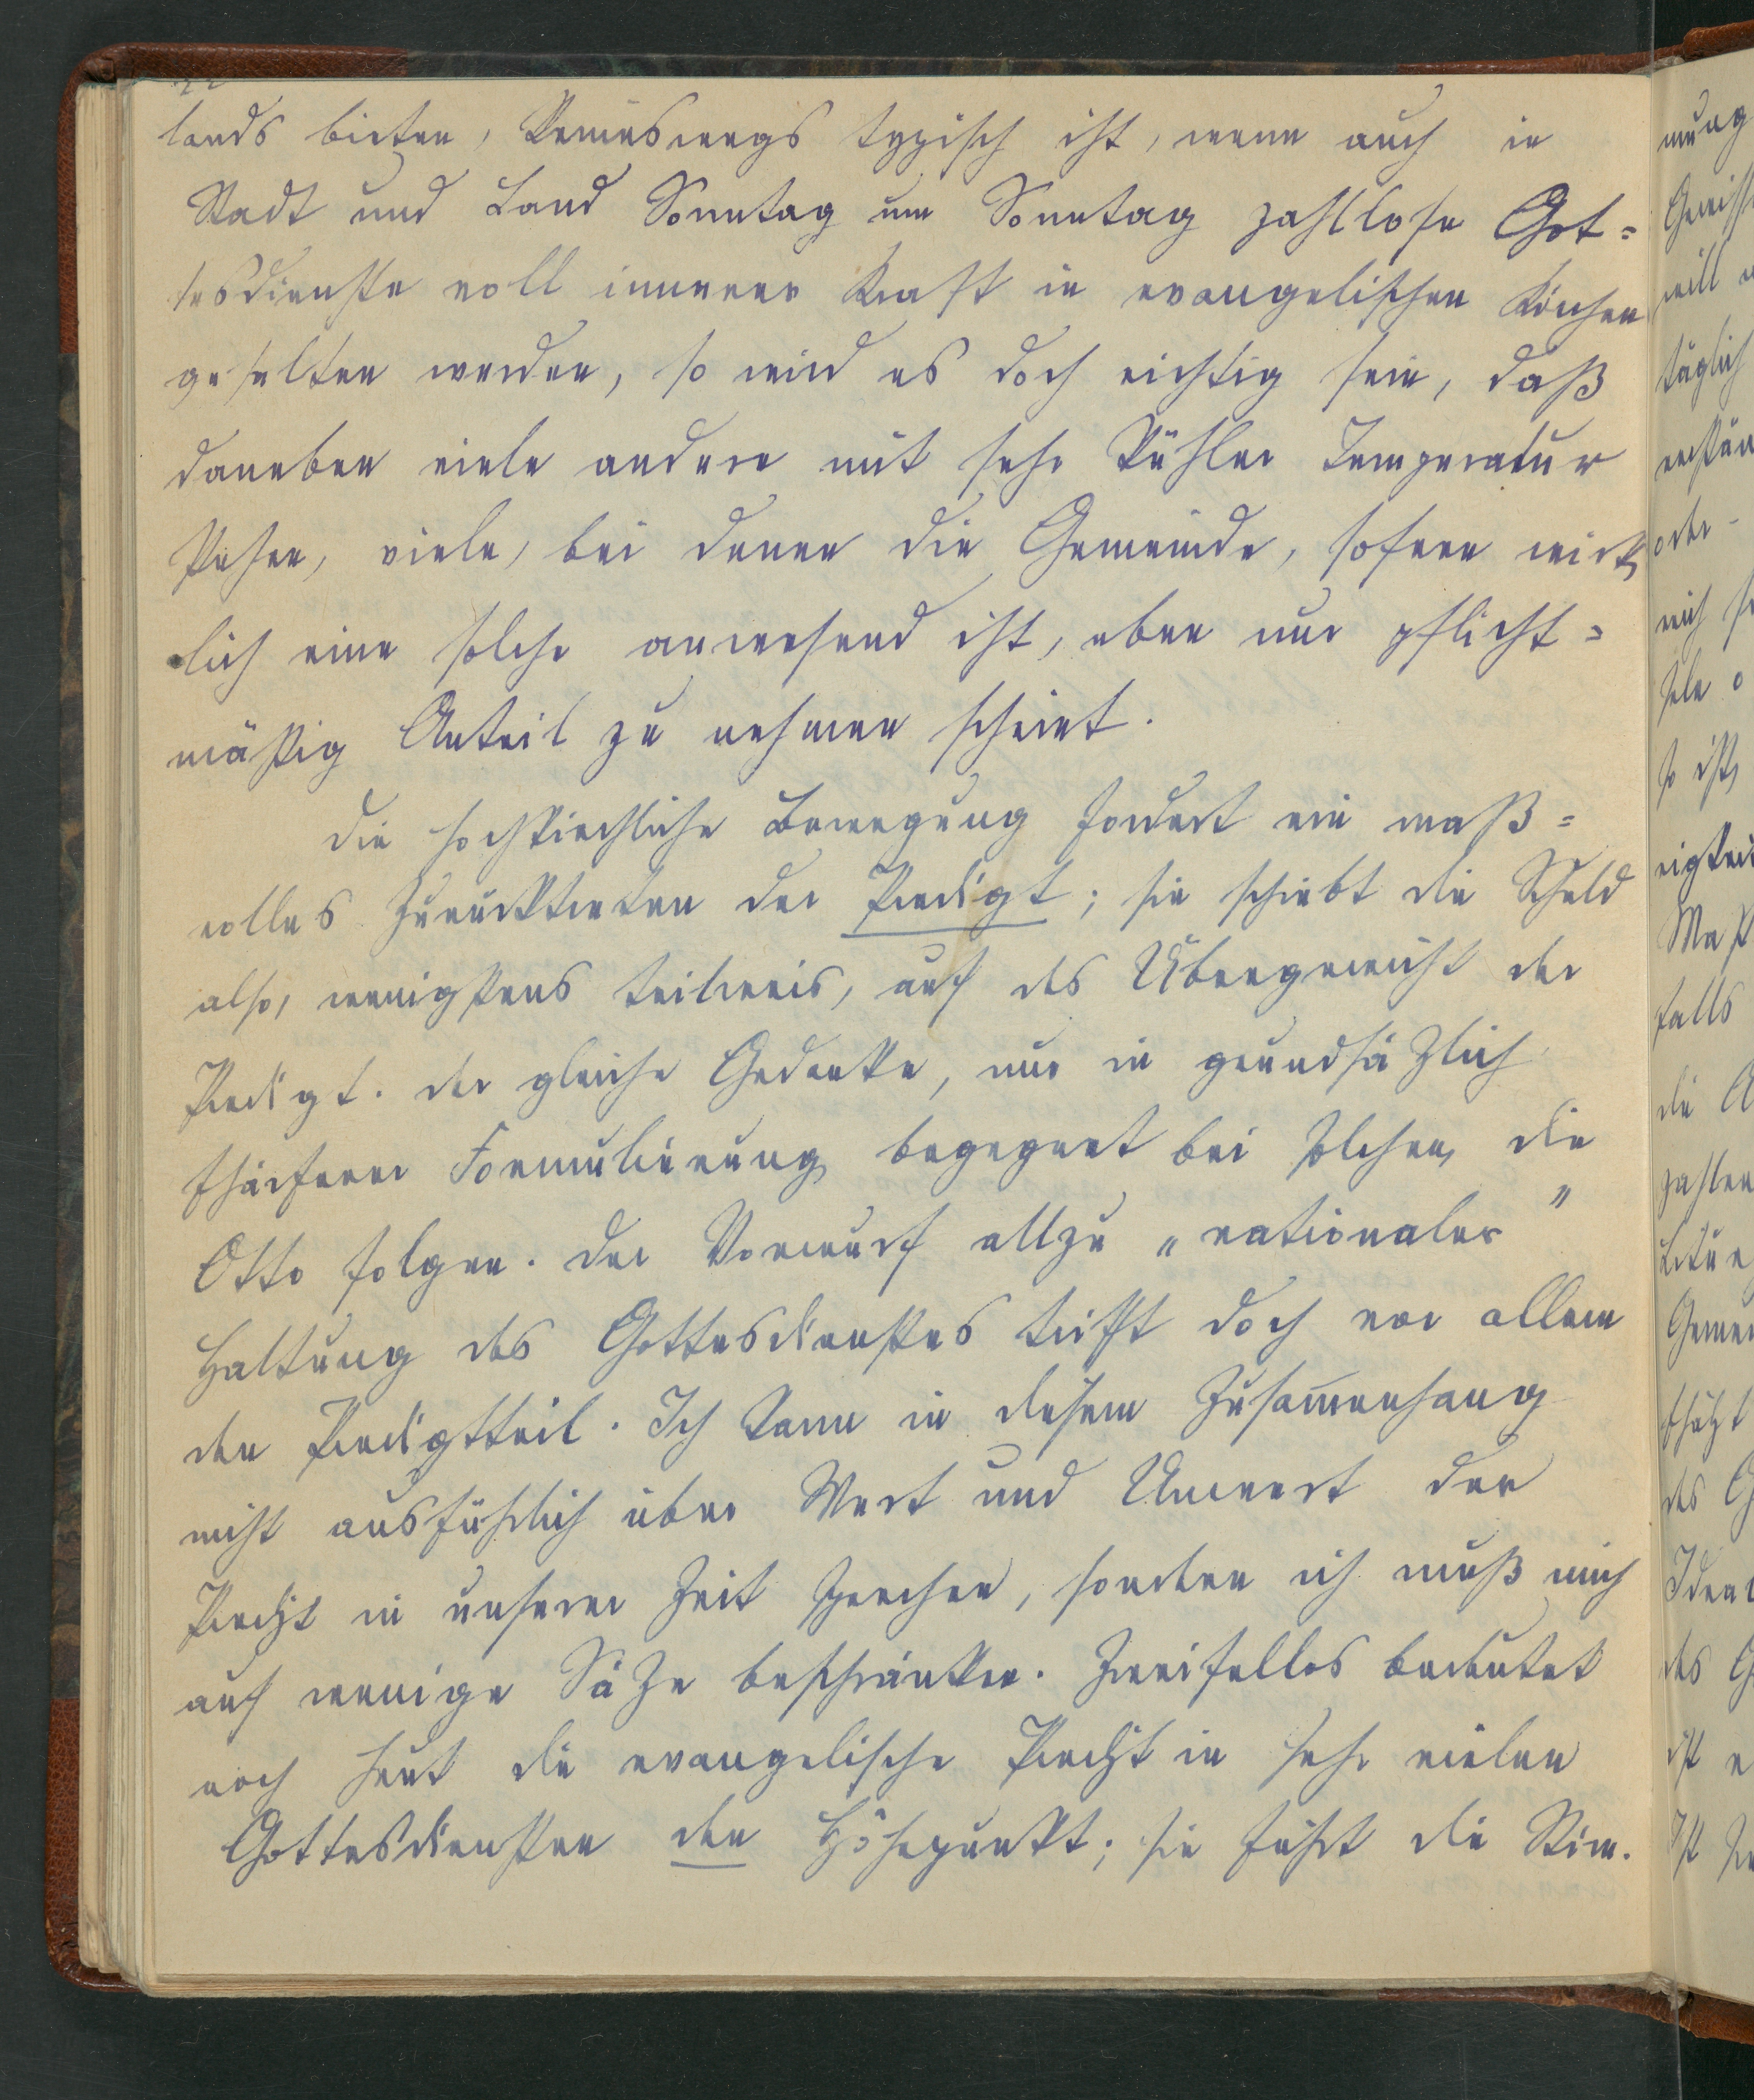 22
lands bieten, keineswegs typisch ist, wenn auch in
Stadt und Land Sonntag um Sonntag zahllose Got=
tesdienste voll innerer Kraft in evangelischen Kirchen
gehalten werden, so wird es doch richtig sein, daß
daneben viele andere mit sehr kühler Temperatur
stehen, viele, bei denen die Gemeinde, sofern wirk
lich eine solche anwesend ist, eben nur pflicht=
mäßig Anteil zu nehmen scheint.
Die hochkirchliche Bewegung fordert ein maß=
volles Zurücktreten der Predigt; sie schiebt die Schuld
also, wenigstens teilweis, auf das Übergewicht der
Predigt. Der gleiche Gedanke, nur in grundsäzlich
schärferer Formulierung begegnet bei solchen, die
Otto folgen. Der Vorwurf allzu „rationaler"
Haltung des Gottesdienstes trifft doch vor allem
den Predigtteil. Ich kann in diesem Zusam̅enhang
nicht ausführlich über Wert und Unwert der
Predigt in unserer Zeit sprechen, sondern ich muß mich
auf wenige Säze beschränken. Zweifellos bedeutet
noch heut die evangelische Predigt in sehr vielen
Gottesdiensten den Höhepunkt; sie führt die Stim.
mung
will
täglich
oder
mich
so ist,
falls
die
zahlen
des
des
ist